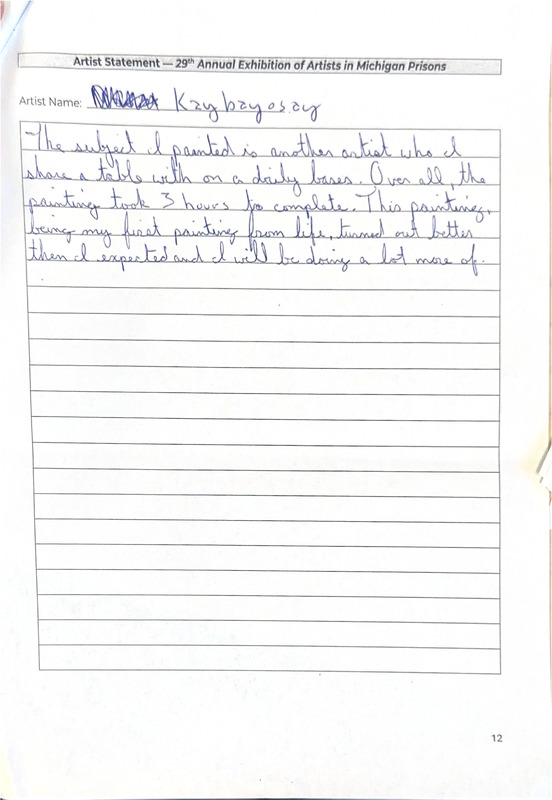 Artist Statement — 29th Annual Exhibition of Artists in Michigan Prisons
Artist Name: Kaybayosay
The subject I painted is another artist who I
share a table with on a daily bases. Over all, the
painting took 3 hours to complete. This painting,
being my first painting from life, turned out better
then I expected and I will be doing a lot more of.
12